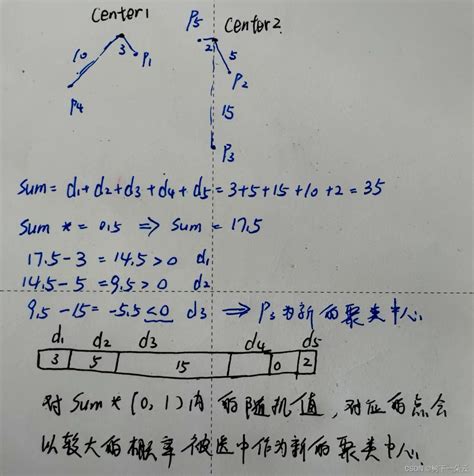 Center1
P5
Center2
10
3
P1
2
5
P2
P4
15
P3
Sum = d1+d2+d3+d4+d5 = 3+5+15+10+2 = 35
Sum *= 0.5 ⇒ Sum = 17.5
17.5-3 = 14.5>0 d1
14.5-5 = 9.5>0 d2
9.5-15 = -5.5≤0 d3 ⇒ P3为新的聚类中心.
d1 d2 d3 d4 d5
3 5 15 0 2
对Sum*(0,1)内的随机值,对应的点会
以较大的概率被选中作为新的聚类中心.